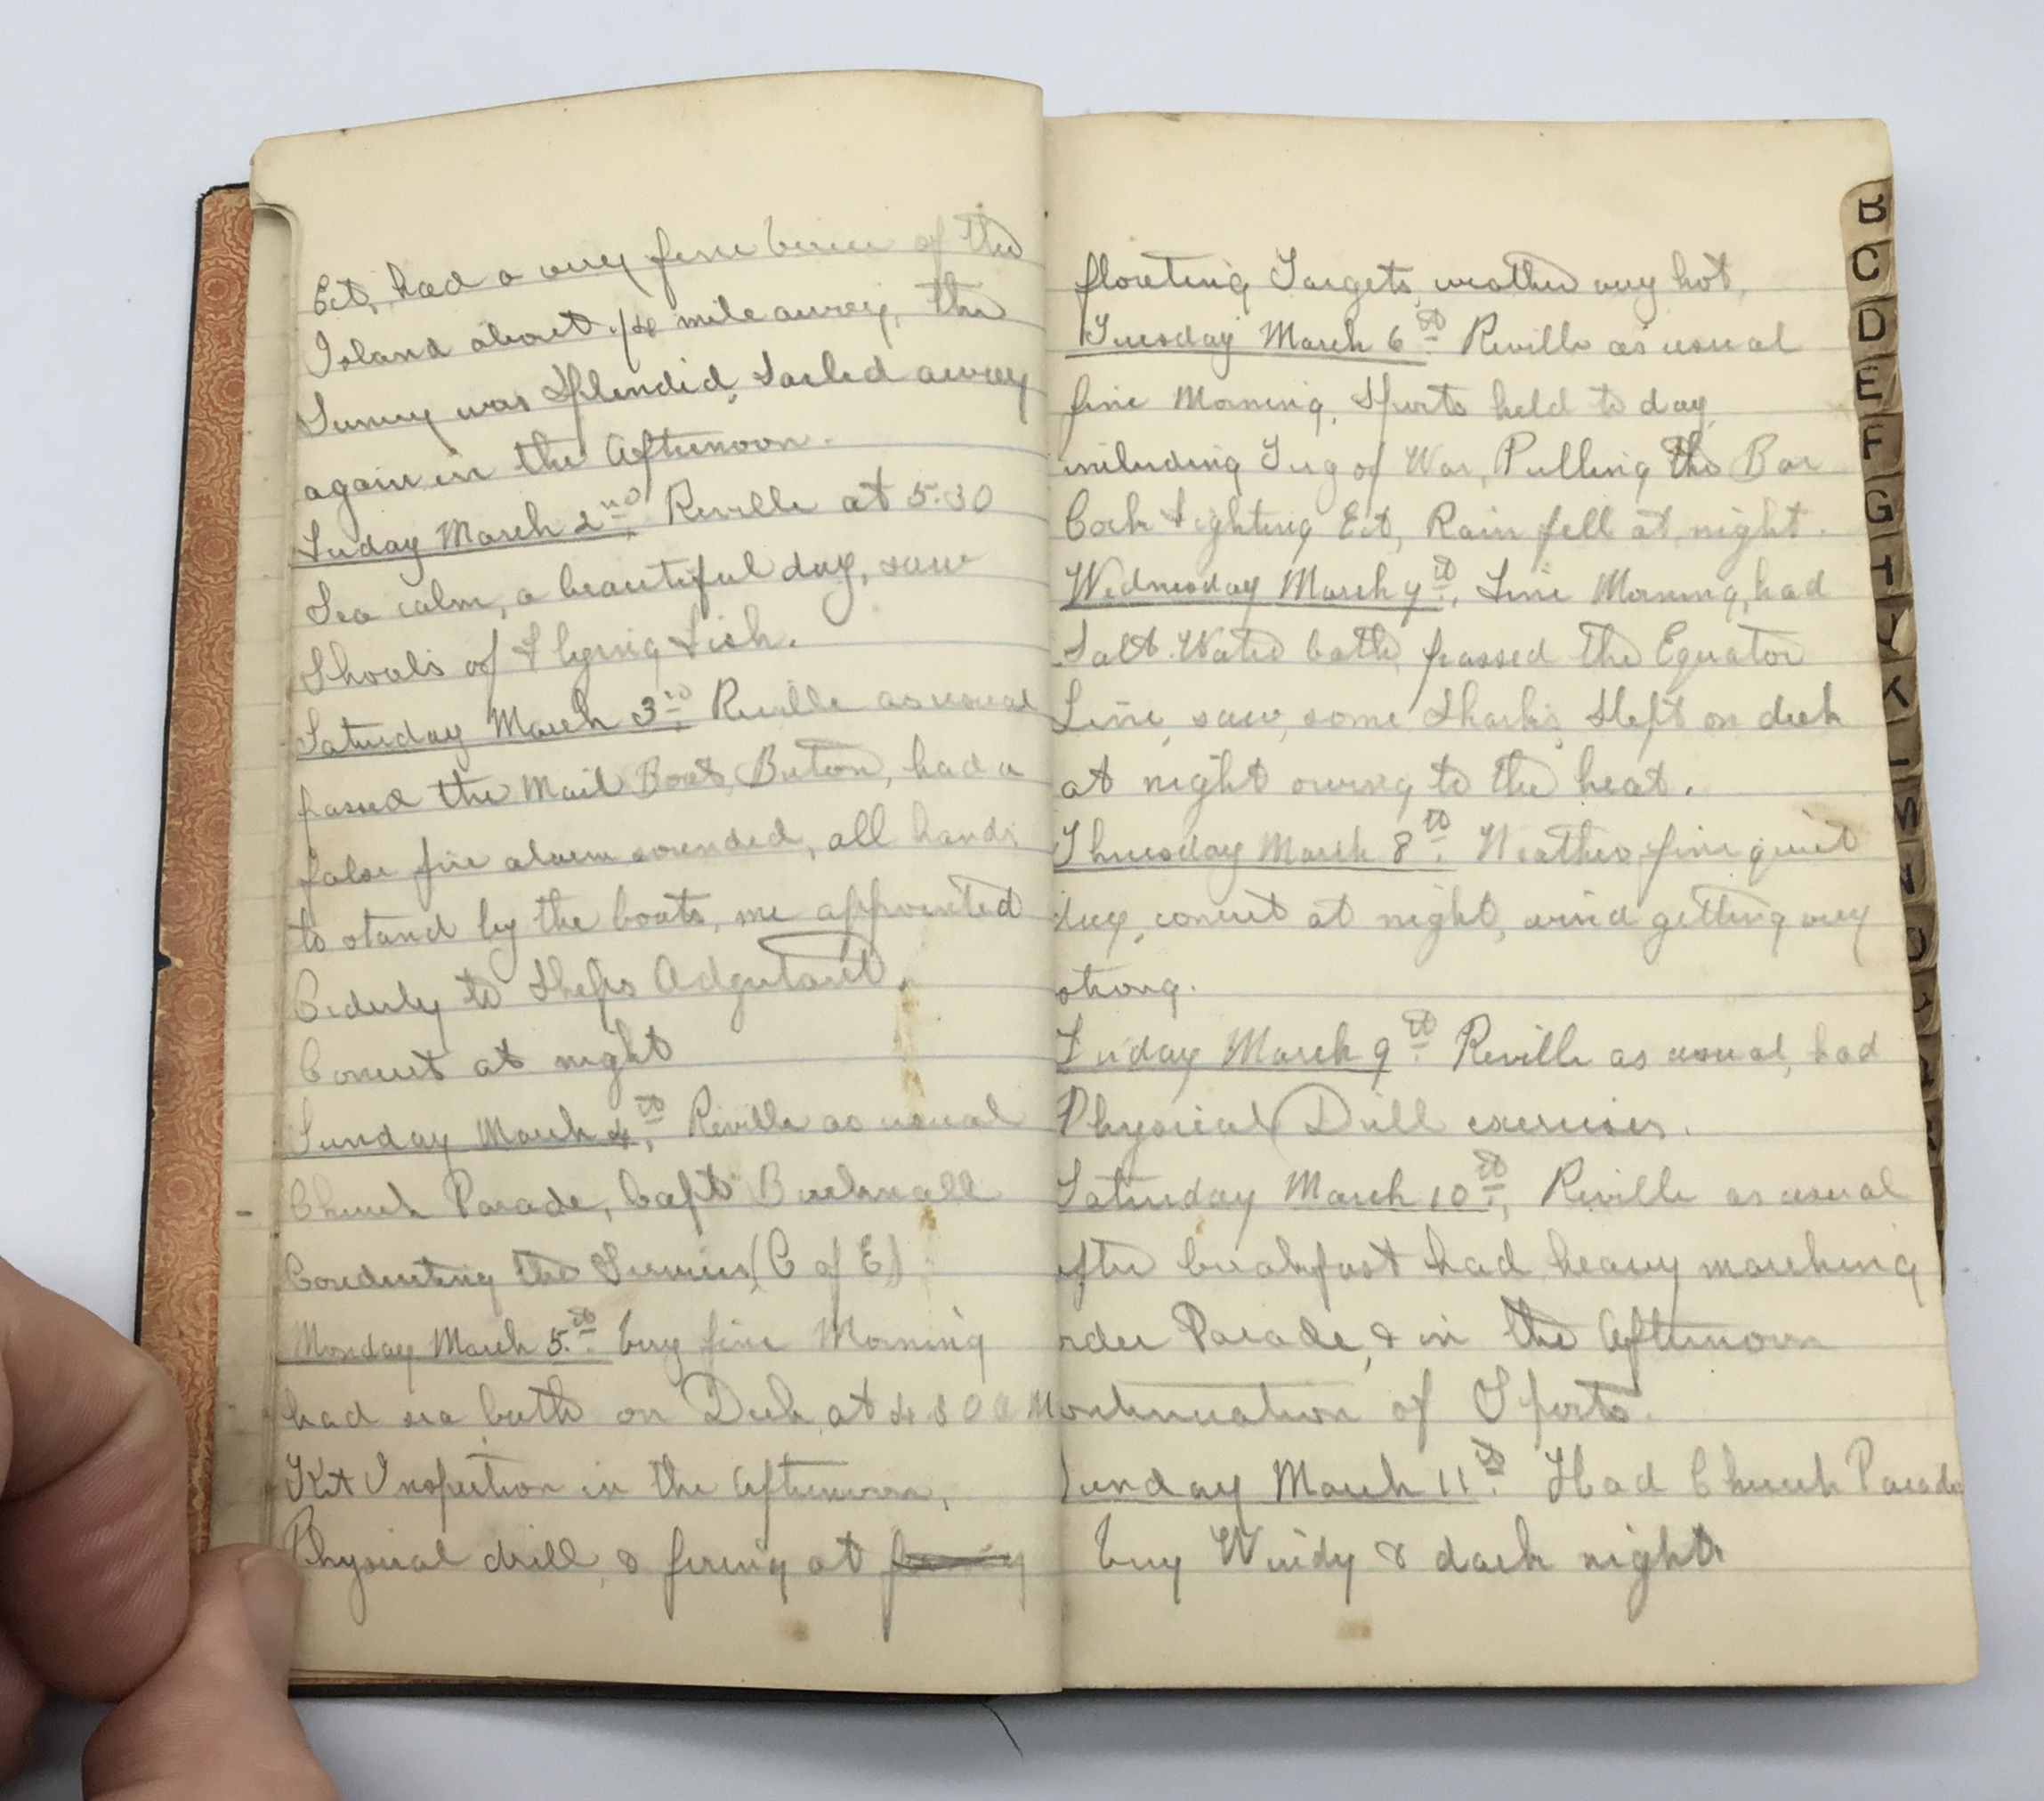 Ect, had a very fine view of the
Island about 1/4 mile away, the
Scenery was Splendid, Sailed away
again in the Afternoon.
Friday March 2nd, Reville at 5.30
Sea calm, a beautiful day, saw
Shoals of Flying Fish.
Saturday March 3rd, Reville as usual
passed the Mail Boat, Briton, had a
false fire alarm sounded, all hands
to stand by the boats, me appointed
Orderly to Ships Adgutant.
Concert at night
Sunday March 4th, Reville as usual
Church Parade, Capt
Conducting the Services (C of E)
Monday March 5th. Very fine Morning
had sea bath on Deck, at 4 30 a M
Kit Inspection in the Afternoon,
Physical drill, & firing at
floating Targets, weather very hot,
Tuesday March 6th. Reville as usual
fine Morning, Sports held to day
including Tug of War, Pulling the Bar
Cock Fighting Ect, Rain fell at night.
Wednesday March 7th, Fine Morning, had
Salt Water bath, passed the Equator
Line, saw, some Sharks, Slept on deck
at night owing to the heat.
Thursday March 8th. Weather, fine quiet
day, concert at night, wind getting very
strong.
Friday March 9th. Reville as usual, had
Physical Drill exercises.
Saturday March 10th, Reville as usual
after breakfast had heavy marching
order Parade, & in the Afternoon
continuation of Sports.
Sunday March 11th. Had Church Parade
Very Windy & dark night
B
C
D
E
F
G
H
J
K
L
M
N
O